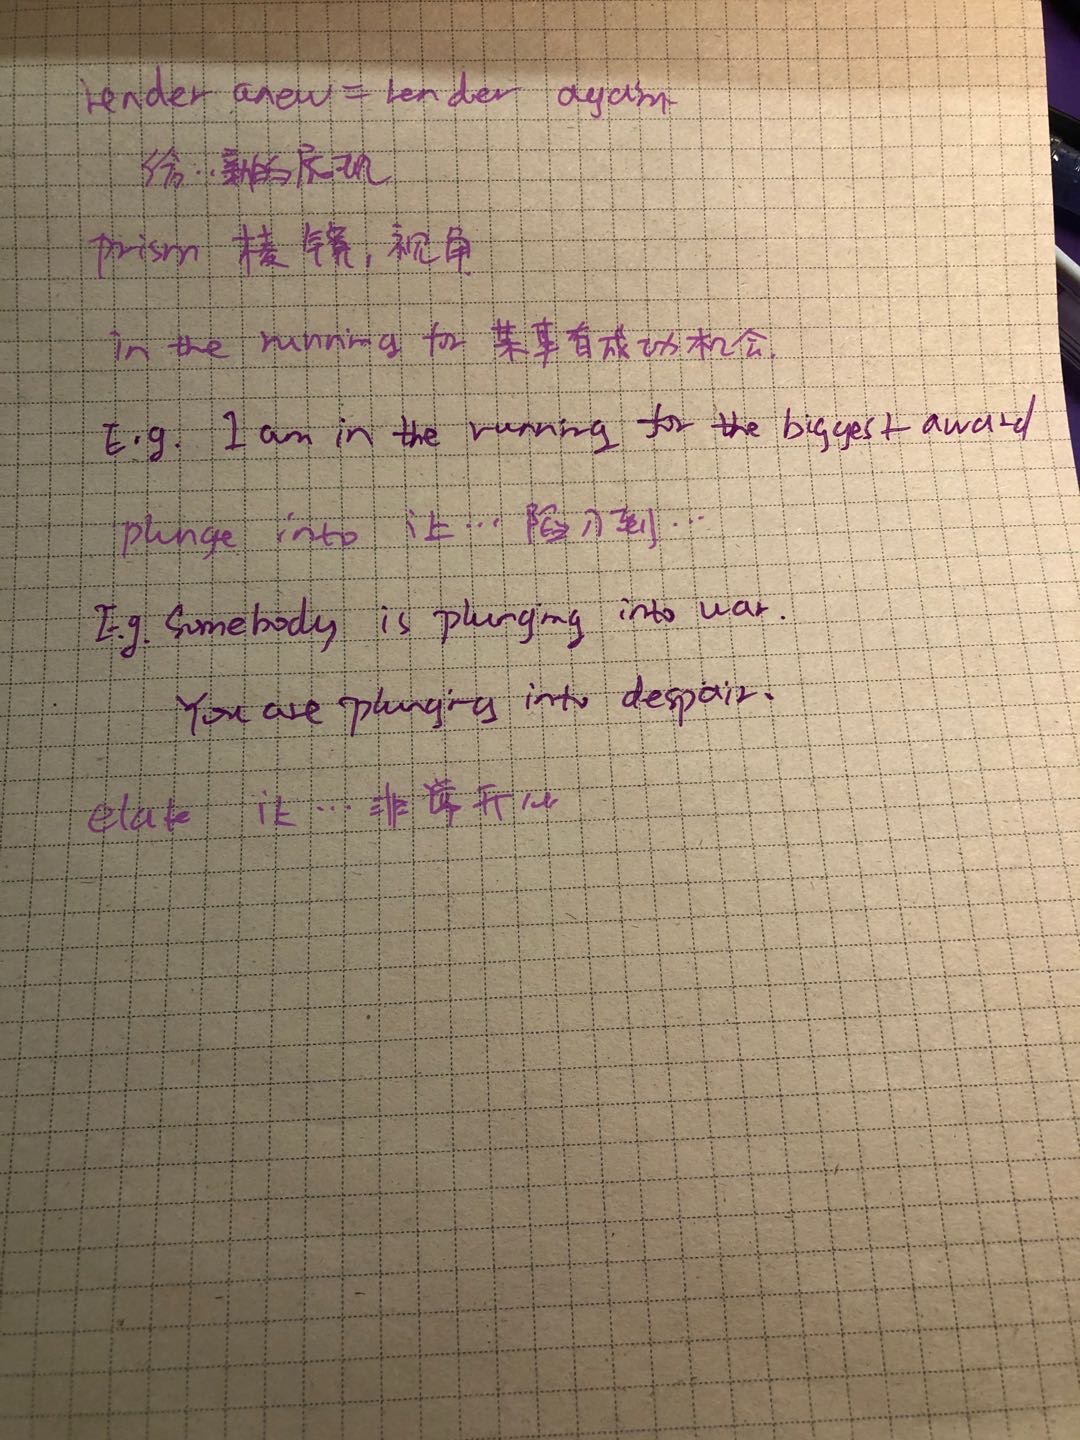 render anew = render again
给…新的展现
prism 棱镜，视角
in the running for 某事有成功机会.
E.g. I am in the running for the biggest award
plunge into 让…陷入到…
E.g. Somebody is plunging into war.
You are plunging into despair.
elate 让…非常开心